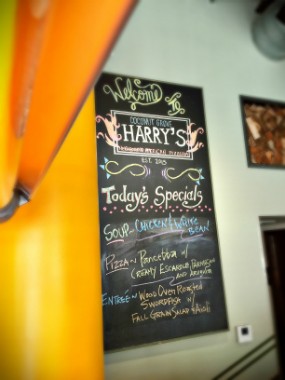 Welcome To
COCONUT GROVE
HARRY'S
EST. 2013
Today's Specials
SOUP- CHICKEN & WHITE
BEAN
PIZZA- Pancetta w/
CREAMY ESCAROLE,
AND Arugula
ENTRÉE- WOOD OVEN ROASTED
SWORDFISH w/
FALL GRAIN SALAD & Aioli